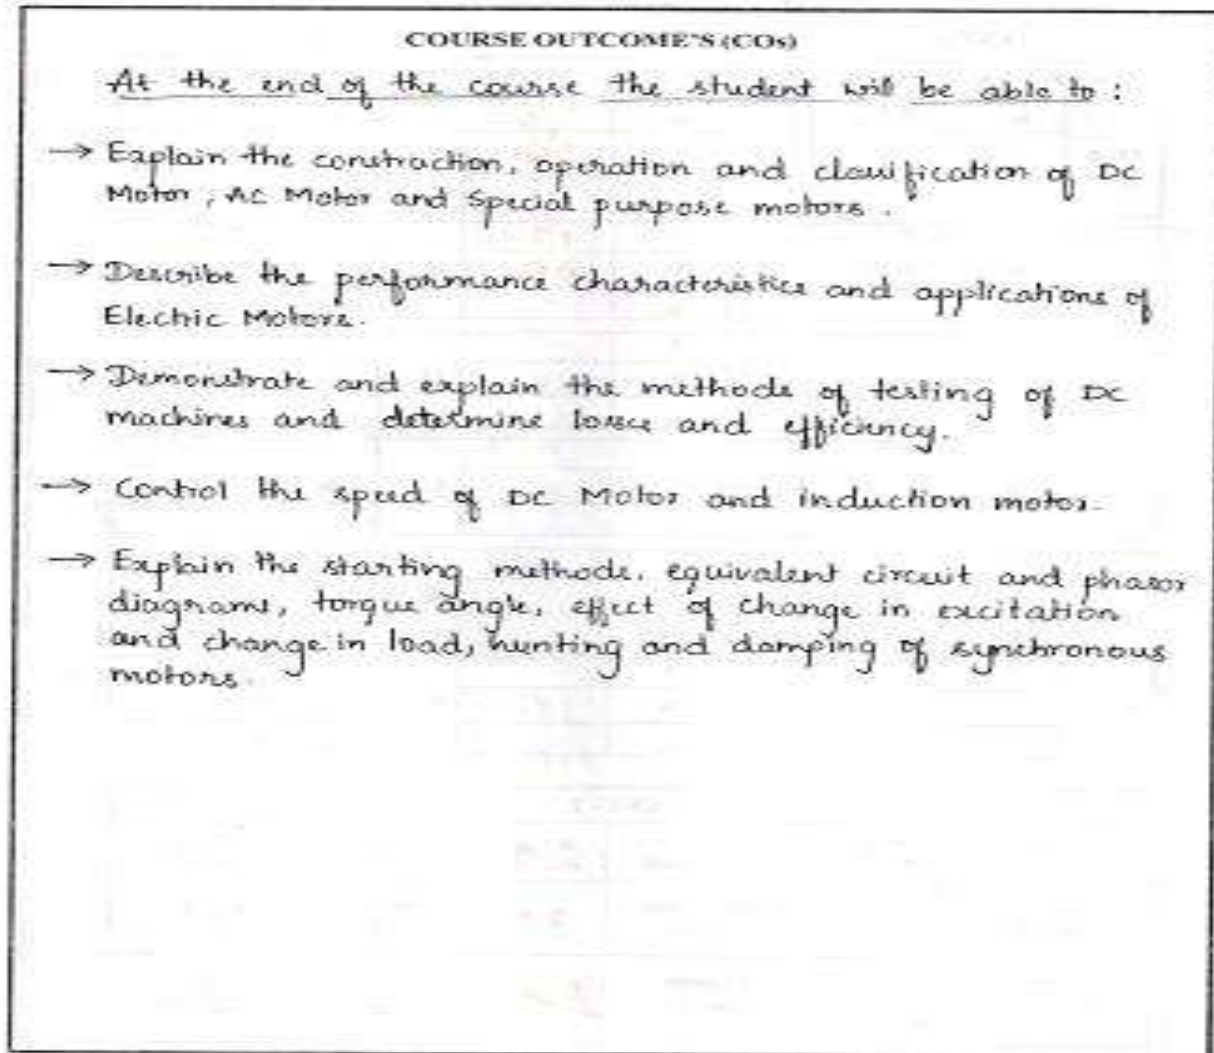 COURSE OUTCOME'S (COs)
At the end of the course the student will be able to :
→ Explain the construction, operation and classification of DC
Motor, AC Motor and Special purpose motors.
→ Describe the performance characteristics and applications of
Electric Motors.
→ Demonstrate and explain the methods of testing of DC
machines and determine losses and efficiency.
→ Control the speed of DC Motor and induction motor.
→ Explain the starting methods, equivalent circuit and phasor
diagrams, torque angle, effect of change in excitation
and change in load, hunting and damping of synchronous
motors.